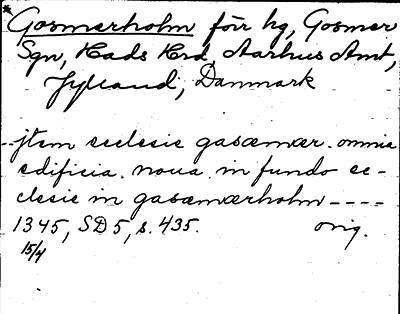 *Gosmerholm förr hg, Gosmer
Sgn, Hads Hrd, Aarhus Amt,
Jylland, Danmark
--jtem ecclesie gasæmær. omnia
edificia. noua. in fundo ec-
clesie in gasæmærholm ----
1345, SD5, s. 435. orig.
15/4